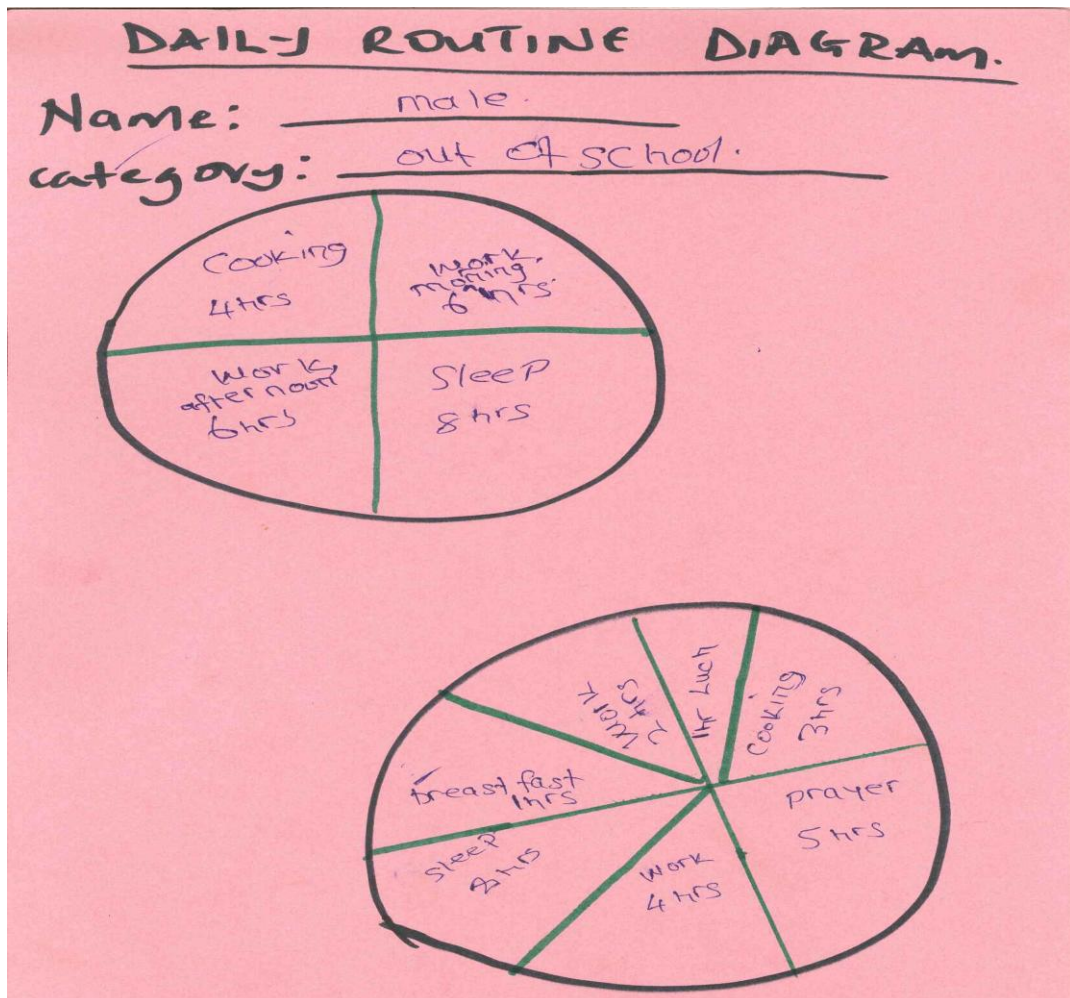 DAILY ROUTINE DIAGRAM.
Name: male.
category: out of school.
Cooking
4hrs
work,
moring
6 hrs.
work,
after noon
6hrs
Sleep
8 hrs
work
2 hrs
1hr Luch
Cooking
3hrs
breast fast
1hrs
prayer
5 hrs
Sleep
8hrs
work
4 hrs